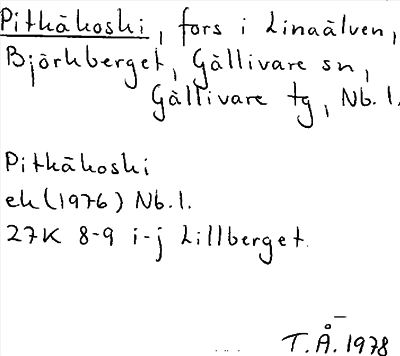 Pitkäkoski, fors i Linaälven,
Björkberget, Gällivare sn,
Gällivare tg, Nb. l.
Pitkäkoski
ek (1976) Nb. l.
27K 8-9 i-j Lillberget.
T. Å. 1978